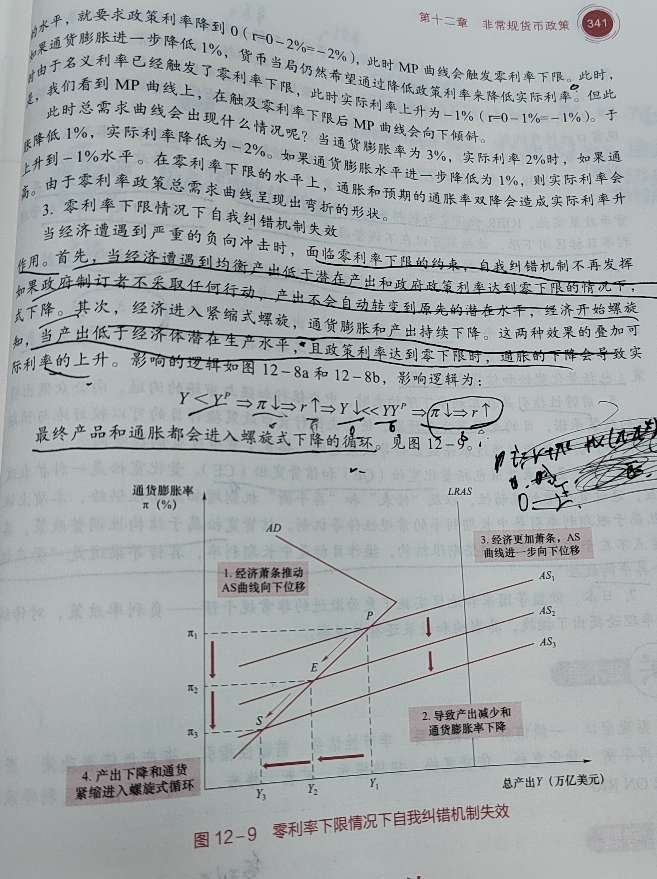 第十二章 非常规货币政策 341
的水平，就要求政策利率降到 0（r=0－2%=－2%），此时 MP 曲线会触发零利率下限。此时，
如果通货膨胀进一步降低 1%，货币当局仍然希望通过降低政策利率来降低实际利率。但此
时由于名义利率已经触发了零利率下限，此时实际利率上升为－1%（r=0－1%=－1%）。于
是，我们看到 MP 曲线上，在触及零利率下限后 MP 曲线会向下倾斜。
此时总需求曲线会出现什么情况呢？当通货膨胀率为 3%，实际利率 2%时，如果通
胀降低 1%，实际利率降低为－2%。如果通货膨胀水平进一步降低为 1%，则实际利率会
上升到－1%水平。在零利率下限的水平上，通胀和预期的通胀率双降会造成实际利率升
高。由于零利率政策总需求曲线呈现出弯折的形状。
3. 零利率下限情况下自我纠错机制失效
当经济遭遇到严重的负向冲击时，面临零利率下限的约束，自我纠错机制不再发挥
作用。首先，当经济遭遇到均衡产出低于潜在产出和政府政策利率达到零下限的情况下，
如果政府制订者不采取任何行动，产出不会自动转变到原先的潜在水平，经济开始螺旋
式下降。其次，经济进入紧缩式螺旋，通货膨胀和产出持续下降。这两种效果的叠加可
知，当产出低于经济体潜在生产水平，且政策利率达到零下限时，通胀的下降会导致实
际利率的上升。影响的逻辑如图 12－8a 和 12－8b，影响逻辑为：
Y＜Yᴾ⇒π↓⇒r↑⇒Y↓<<YYᴾ⇒π↓⇒r↑
最终产品和通胀都会进入螺旋式下降的循环。见图 12－9。
通货膨胀率
π（%）
LRAS
AD
3. 经济更加萧条，AS
曲线进一步向下位移
1. 经济萧条推动
AS曲线向下位移
AS₁
P
AS₂
π₁
AS₃
E
π₂
S
π₃
2. 导致产出减少和
通货膨胀率下降
4. 产出下降和通货
紧缩进入螺旋式循环
Y₃ Y₂ Y₁
总产出Y（万亿美元）
图 12－9 零利率下限情况下自我纠错机制失效